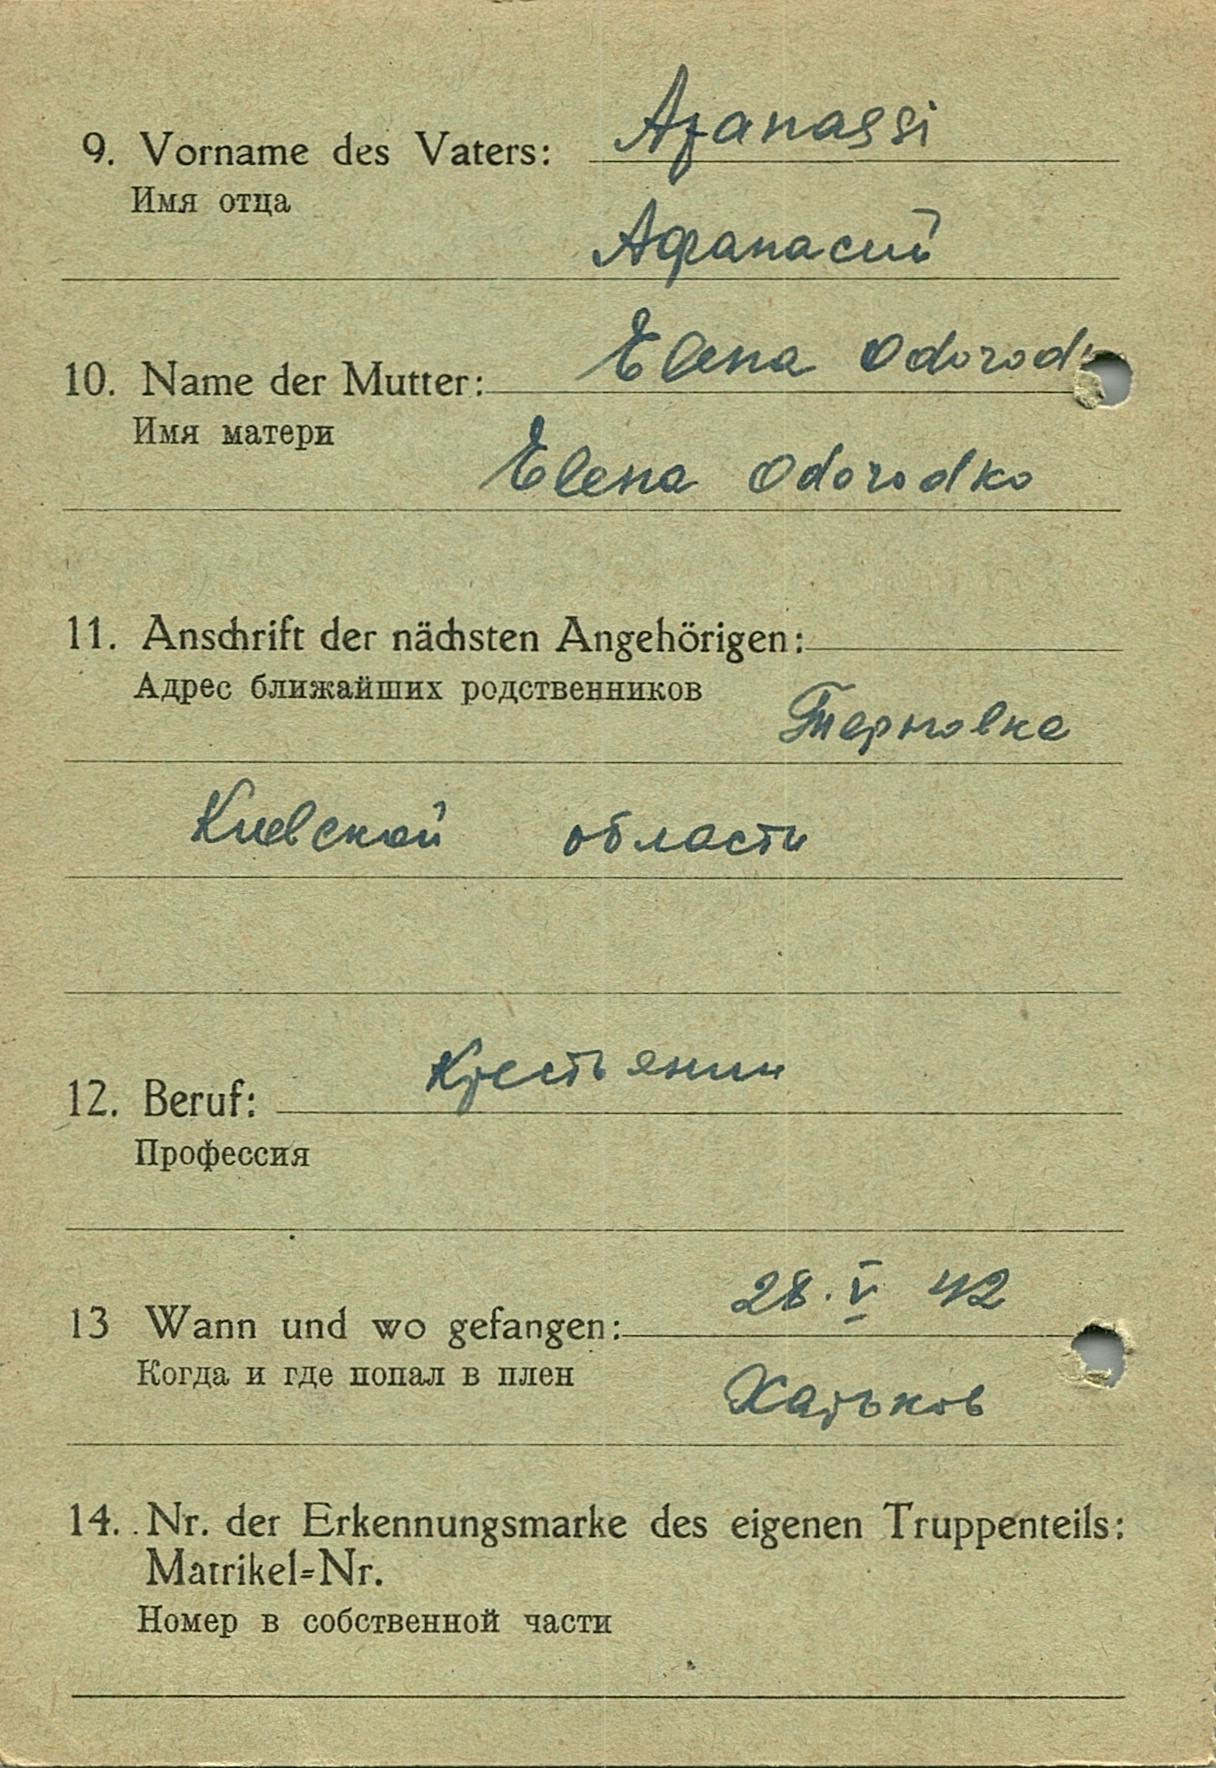 9. Vorname des Vaters: Afanassi
Имя отца
Афанасий
10. Name der Mutter: Elena Odorodk
Имя матери
Elena Odorodko
11. Anschrift der nächsten Angehörigen:
Адрес ближайших родственников
Терновке
Киевской области
12. Beruf: Крестьянин
Профессия
13 Wann und wo gefangen: 28. V 42
Когда и где попал в плен
Харьков
14. Nr. der Erkennungsmarke des eigenen Truppenteils:
Matrikel=Nr.
Номер в собственной части